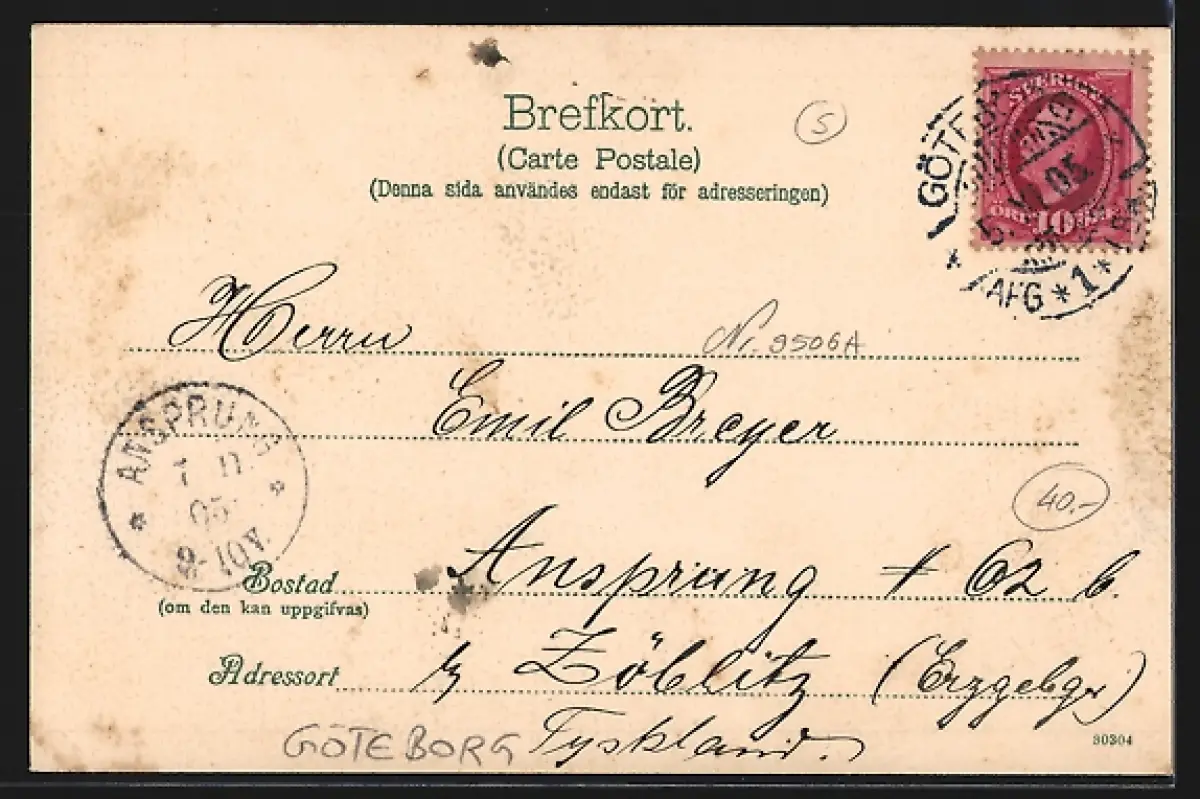 Brefkort.
(Carte Postale)
(Denna sida användes endast för adresseringen)
5
SVERIGE
ÖRE 10 ÖRE
GÖTEBORG
05
AFG * 1 *
Herrn
Nr. 9506A
Emil Breyer
ANSPRUNG
7 11
05
9-10V.
40.-
Bostad
(om den kan uppgifvas)
Ansprung # 62 b.
Adressort
b/ Zöblitz (Erzgebge)
GÖTEBORG
Tyskland.
80304